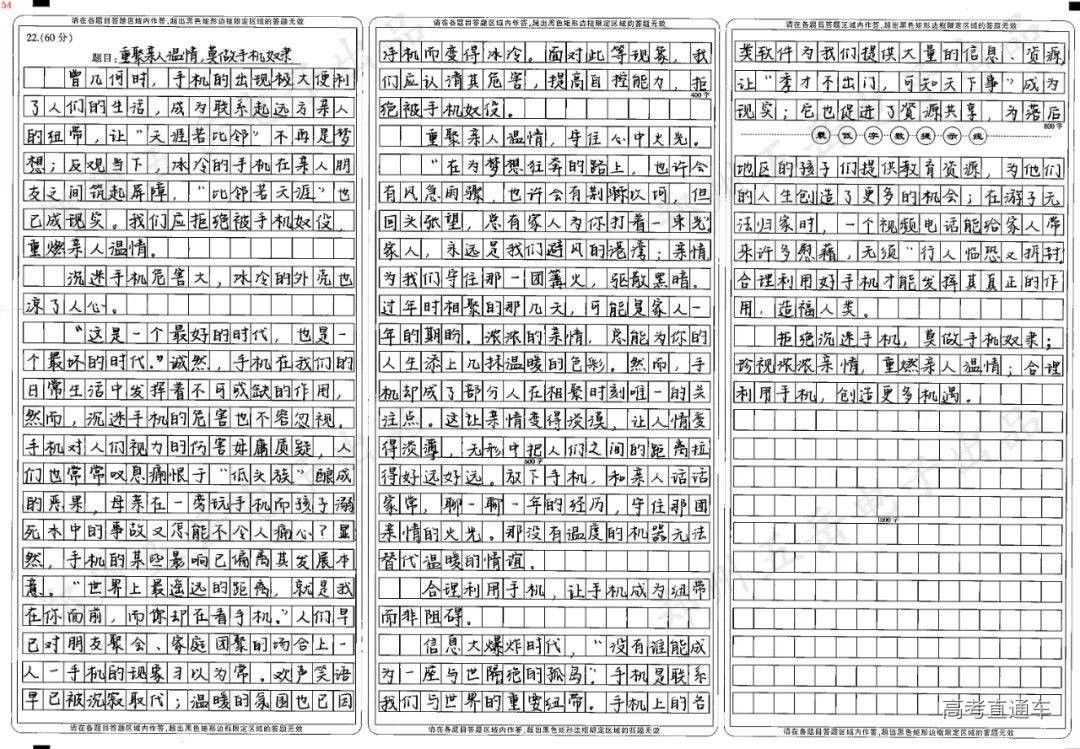 54
请在各题目答题区域内作答,超出黑色矩形边框限定区域的答题无效
22.(60分)
题目:重聚亲人温情,莫做手机奴隶
曾几何时,手机的出现极大便利
了人们的生活,成为联系起远方亲人
的纽带,让“天涯若比邻”不再是梦
想;反观当下,冰冷的手机在亲人朋
友之间筑起屏障,“比邻若天涯”也
已成现实。我们应拒绝被手机奴役,
重燃亲人温情。
沉迷手机危害大,冰冷的外壳也
凉了人心。
“这是一个最好的时代,也是一
个最坏的时代。”诚然,手机在我们的
日常生活中发挥着不可或缺的作用,
然而,沉迷手机的危害也不容忽视。
手机对人们视力的伤害毋庸质疑,人
们也常常叹息痛恨于“低头族”酿成
的恶果,母亲在一旁玩手机而孩子溺
死水中的事故又怎能不令人痛心?显
然,手机的某些影响已偏离其发展本
意。“世界上最遥远的距离,就是我
在你面前,而你却在看手机。”人们早
已对朋友聚会、家庭团聚的场合上一
人一手机的现象习以为常。欢声笑语
早已被沉寂取代;温暖的氛围也已因
请在各题目答题区域内作答,超出黑色矩形边框限定区域的答题无效
请在各题目答题区域内作答,超出黑色矩形边框限定区域的答题无效
手机而变得冰冷。面对此等现象,我
们应认清其危害,提高自控能力,拒
400字
绝被手机奴役。
重聚亲人温情,守住心中火光。
“在为梦想狂奔的路上,也许会
有风急雨骤,也许会有荆棘坎坷,但
回头张望,总有家人为你打着一束光”
家人,永远是我们避风的港湾;亲情
为我们守住那一团篝火,驱散黑暗。
过年时相聚的那几天,可能是家人一
年的期盼。浓浓的亲情,总能为你的
人生添上几抹温暖的色彩。然而,手
机却成了部分人在相聚时刻唯一的关
注点。这让亲情变得淡漠,让人情变
得淡薄,无形中把人们之间的距离拉
600字
得好远好远。放下手机,和亲人话话
家常,聊一聊一年的经历,守住那团
亲情的火光。那没有温度的机器无法
替代温暖的情谊。
合理利用手机,让手机成为纽带
而非阻碍。
信息大爆炸时代,“没有谁能成
为一座与世隔绝的孤岛”手机是联系
我们与世界的重要纽带。手机上的各
请在各题目答题区域内作答,超出黑色矩形边框限定区域的答题无效
请在各题目答题区域内作答,超出黑色矩形边框限定区域的答题无效
类软件为我们提供大量的信息、资源
让“秀才不出门,可知天下事”成为
现实;它也促进了资源共享,为落后
800字
最低字数提示线
地区的孩子们提供教育资源,为他们
的人生创造了更多的机会;在游子无
法归家时,一个视频电话能给家人带
来许多慰藉,无须“行人临恐又拆封
合理利用好手机才能发挥其真正的作
用,造福人类。
拒绝沉迷手机,莫做手机奴隶;
珍视浓浓亲情,重燃亲人温情;合理
利用手机,创造更多机遇。
1000字
请在各题目答题区域内作答,超出黑色矩形边框限定区域的答题无效
高考直通车